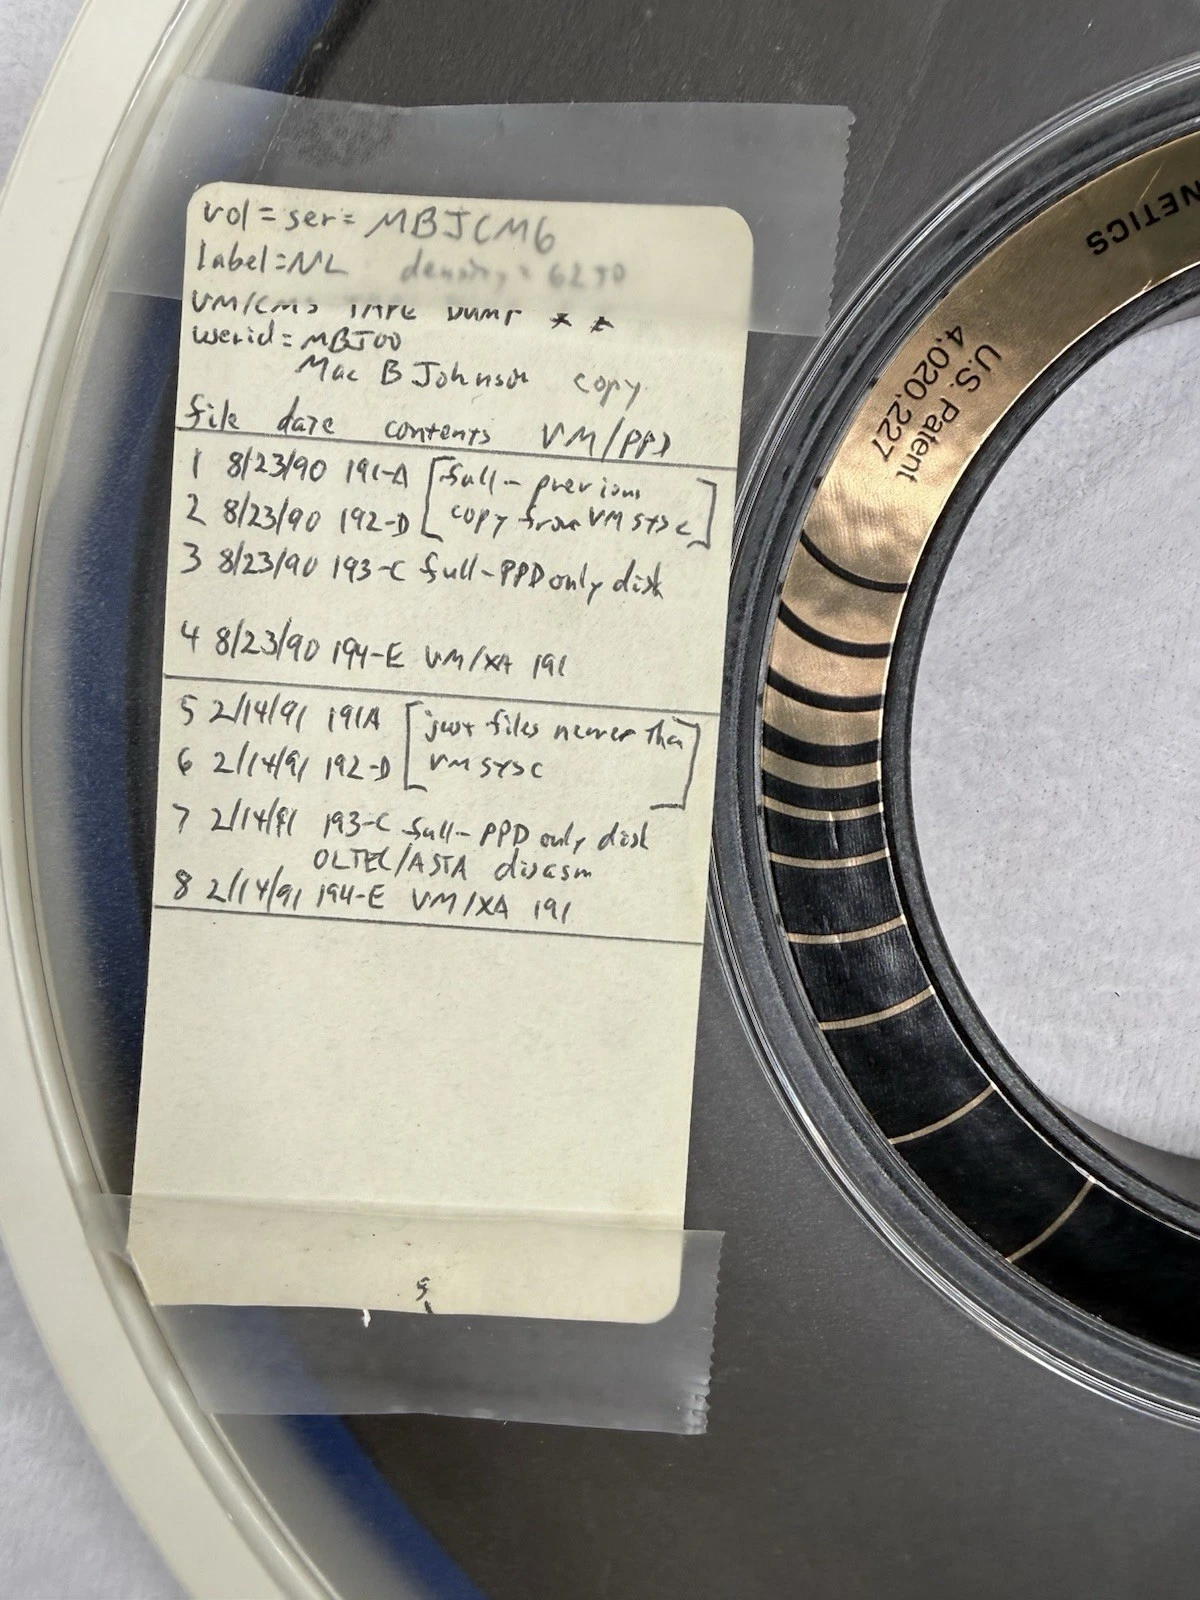 vol=ser=MBJCM6
label=NL density=6250
VM/CMS TAPE DUMP **
userid=MBJ00
Mac B Johnson copy
file date contents VM/PPD
1 8/23/90 191-A [full- previous
2 8/23/90 192-D copy from VMSYSC]
3 8/23/90 193-C full-PPD only disk
4 8/23/90 194-E VM/XA 191
5 2/14/91 191A [just files newer than
6 2/14/91 192-D VMSYSC]
7 2/14/91 193-C full-PPD only disk
OLTEC/ASTA disasm
8 2/14/91 194-E VM/XA 191
NETICS
U.S. Patent
4,020,227